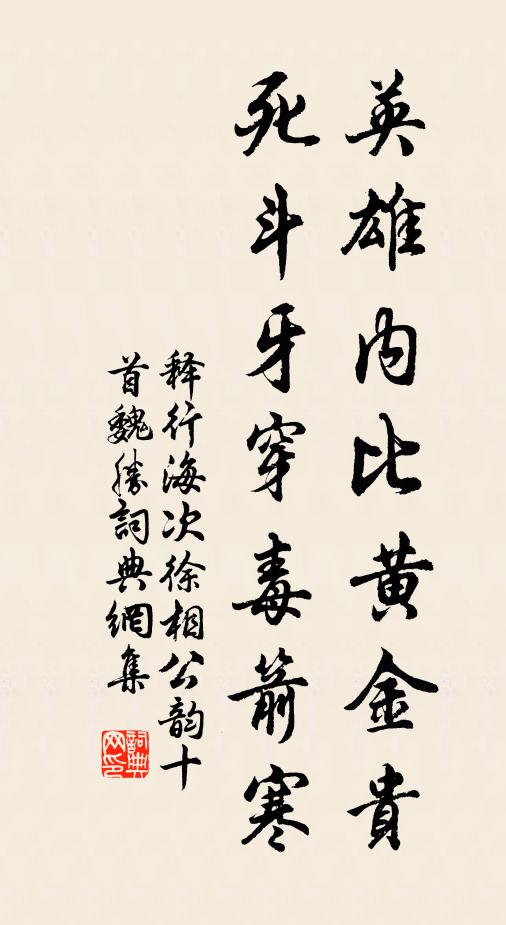 英雄内比黄金貴
死斗牙穿毒箭寒
释行海次徐相公韵十
首魏勝詞典網集
詞典网印